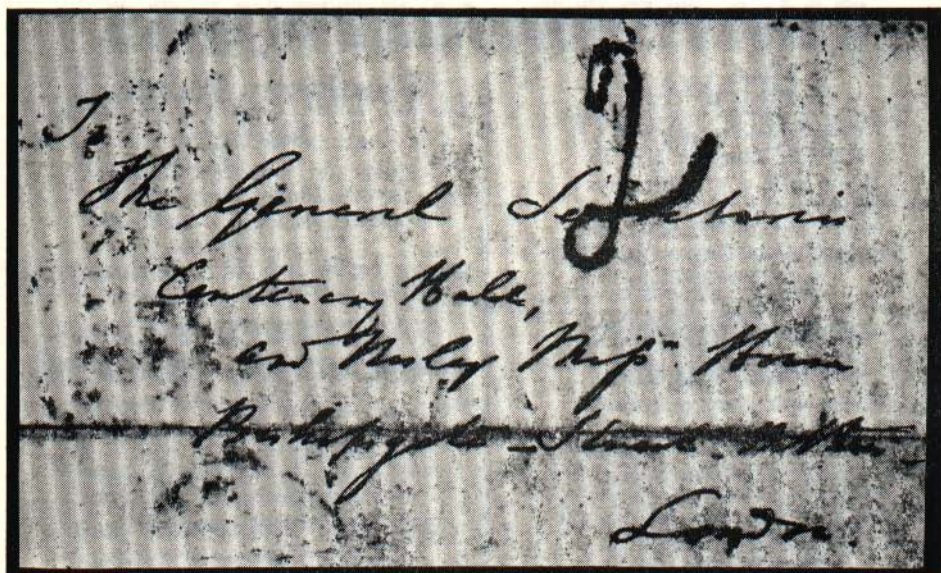 To
The General Secretaries
Centenary Hall,
and Wesley Miss. House
Bishopsgate Street Within
London.